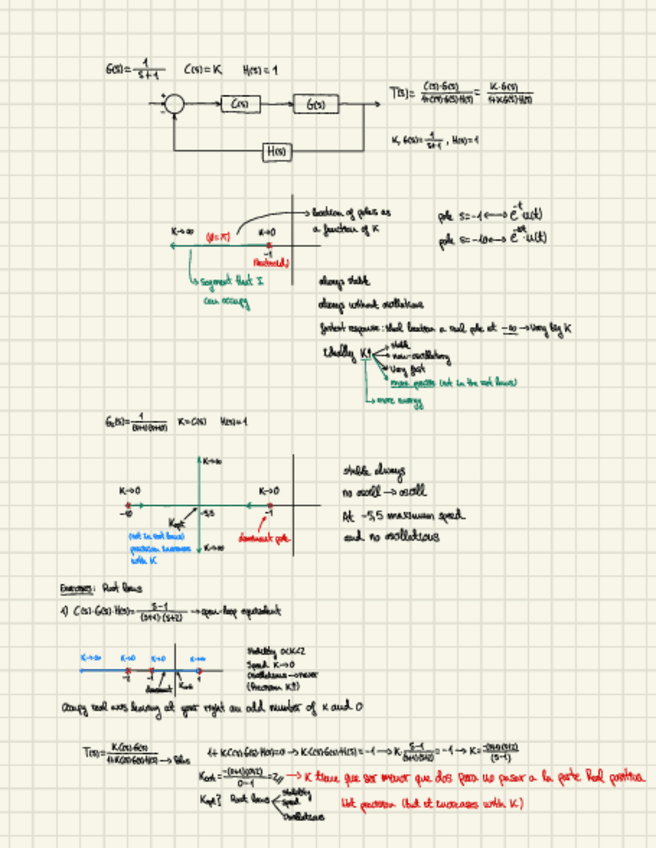 G(s)= 1/(s+1)   C(s)=K   H(s)=1
T(s)= C(s)·G(s)/(1+C(s)·G(s)·H(s)) = K·G(s)/(1+KG(s)·H(s))
+
-
C(s)
G(s)
H(s)
K, G(s)= 1/(s+1), H(s)=1
location of poles as
a function of K
K→∞
(Ø=π)
K→0
-1
segment that I
can occupy
pole s=-1 ⟷ e^-t u(t)
pole s=-10 ⟷ u(t)
always stable
always without oscillations
fastest response: ideal location a real pole at -∞ → very big K
Ideally K↑
stable
non-oscillatory
very fast
more precise (not in the root locus)
more energy
K=C(s)   H(s)=1
K→∞
K→0
K→0
-10
-5,5
-1
Kopt
(not in root locus)
precision increases
with K
dominant pole
K→∞
stable always
no oscill → oscill
At -5,5 maximum speed
and no oscillations
Exercises: Root locus
1) C(s)·G(s)·H(s)= (s-1)/((s+1)·(s+2)) → open-loop equivalent
K→∞
K→0
K→0
K→∞
-2
-1
1
dominant
Stability 0<K<2
Speed K→0
Oscillations → never
(Precision K↑)
Occupy real axis leaving at your right an odd number of x and 0
T(s)= K·C(s)·G(s)/(1+K·C(s)·G(s)·H(s)) → Poles
1+K·C(s)·G(s)·H(s)=0 → K·C(s)·G(s)·H(s)=-1 → K· (s-1)/((s+1)(s+2)) = -1 → K= -(s+1)(s+2)/(s-1)
= -(0+1)(0+2)/(0-1) =2 → K tiene que ser menor que dos para no pasar a la parte Real positiva
Kopt? Root locus
stability
speed
oscillations
Not precision (but it increases with K)